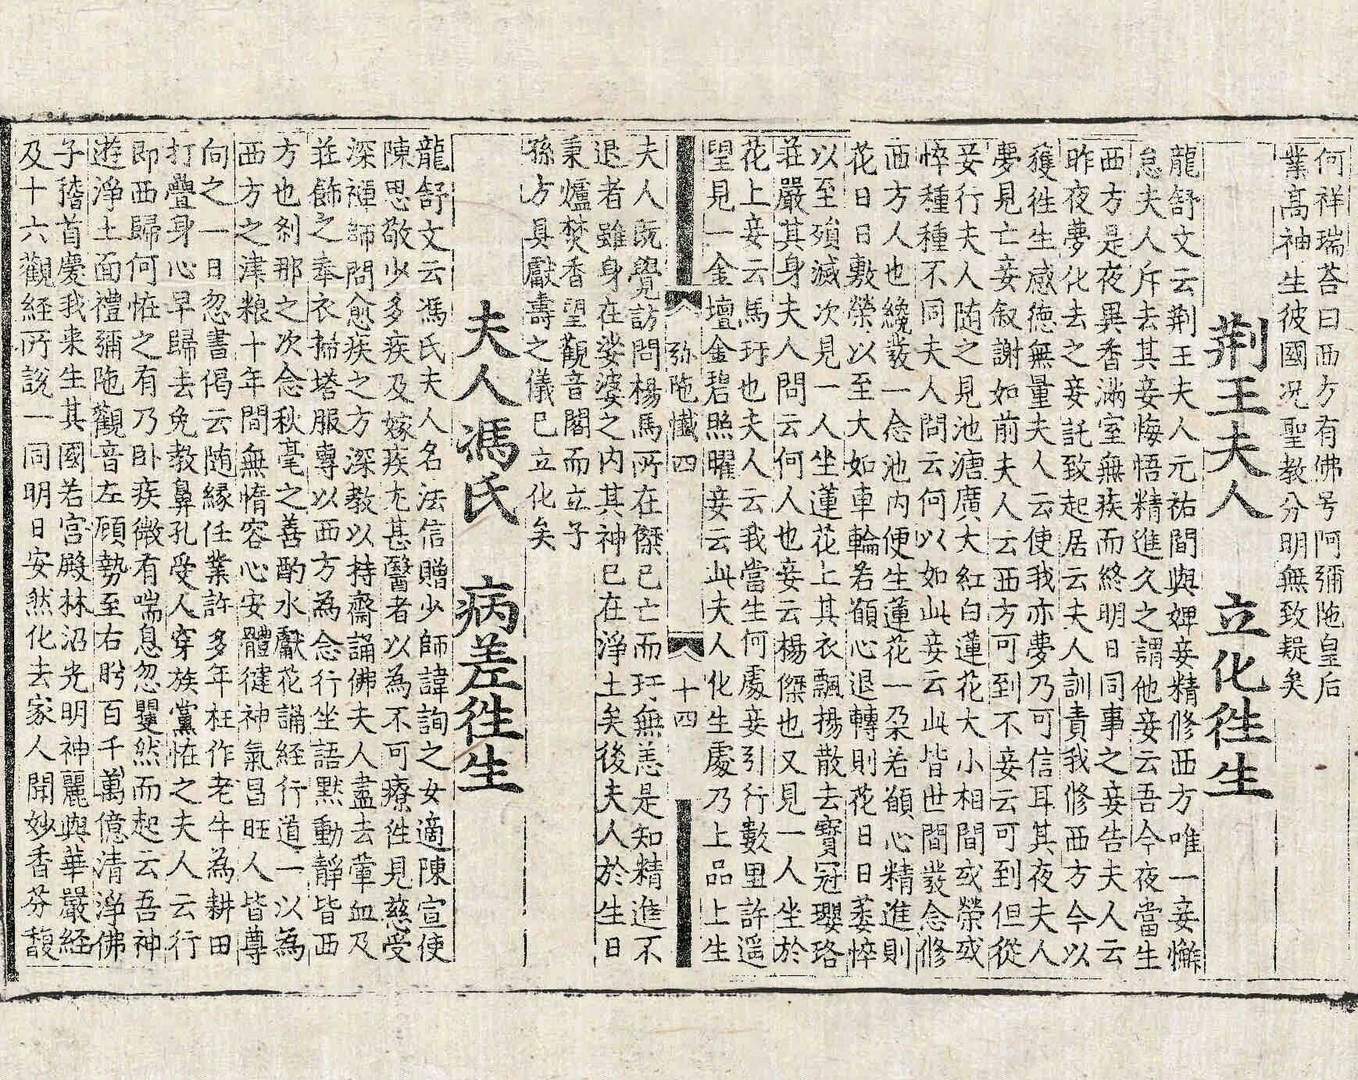 何祥瑞荅曰西方有佛号阿彌陁皇后
業高神生彼國况聖教分明無致疑矣
荆王夫人 立化徃生
龍舒文云荆王夫人元祐間與婢妾精修西方唯一妾懈
怠夫人斥去其妾悔悟精進久之謂他妾云吾今夜當生
西方是夜異香滿室無疾而終明日同事之妾告夫人云
昨夜夢化去之妾託致起居云夫人訓責我修西方今以
獲徃生感徳無量夫人云使我亦夢乃可信耳其夜夫人
夢見亡妾叙謝如前夫人云西方可到不妾云可到但從
妾行夫人随之見池塘廣大紅白蓮花大小相間或榮或
悴種種不同夫人問云何以如此妾云此皆世間發念修
西方人也纔發一念池内便生蓮花一朶若願心精進則
花日日敷榮以至大如車輪若願心退轉則花日日萎悴
以至殞滅次見一人坐蓮花上其衣飄揚散去寶冠瓔珞
莊嚴其身夫人問云何人也妾云楊傑也又見一人坐於
花上妾云馬玗也夫人云我當生何處妾引行數里許遥
望見一金壇金碧照曜妾云此夫人化生處乃上品上生
弥陁懺四 十四
夫人旣覺訪問楊馬所在傑已亡而玗無恙是知精進不
退者雖身在娑婆之内其神已在淨土矣後夫人於生日
秉爐焚香望觀音閣而立子
孫方具獻壽之儀已立化矣
夫人馮氏 病差徃生
龍舒文云馮氏夫人名法信贈少師諱詢之女適陳宣使
陳思敬少多疾及嫁疾尤甚醫者以為不可療徃見慈受
深禪師問愈疾之方深教以持齋誦佛夫人盡去葷血及
莊飾之奉衣掃塔服專以西方為念行坐語默動靜皆西
方也刹那之次念秋毫之善酌水獻花誦經行道一以為
西方之津粮十年間無惰容心安體健神氣昌旺人皆尊
向之一日忽書偈云随縁任業許多年枉作老牛為耕田
打疊身心早歸去免教鼻孔受人穿族黨恠之夫人云行
即西歸何恠之有乃卧疾微有喘息忽矍然而起云吾神
遊淨土面禮彌陁觀音左顧勢至右盻百千萬億清淨佛
子稽首慶我来生其國若宮殿林沼光明神麗與華嚴經
及十六觀經所說一同明日安然化去家人聞妙香芬馥